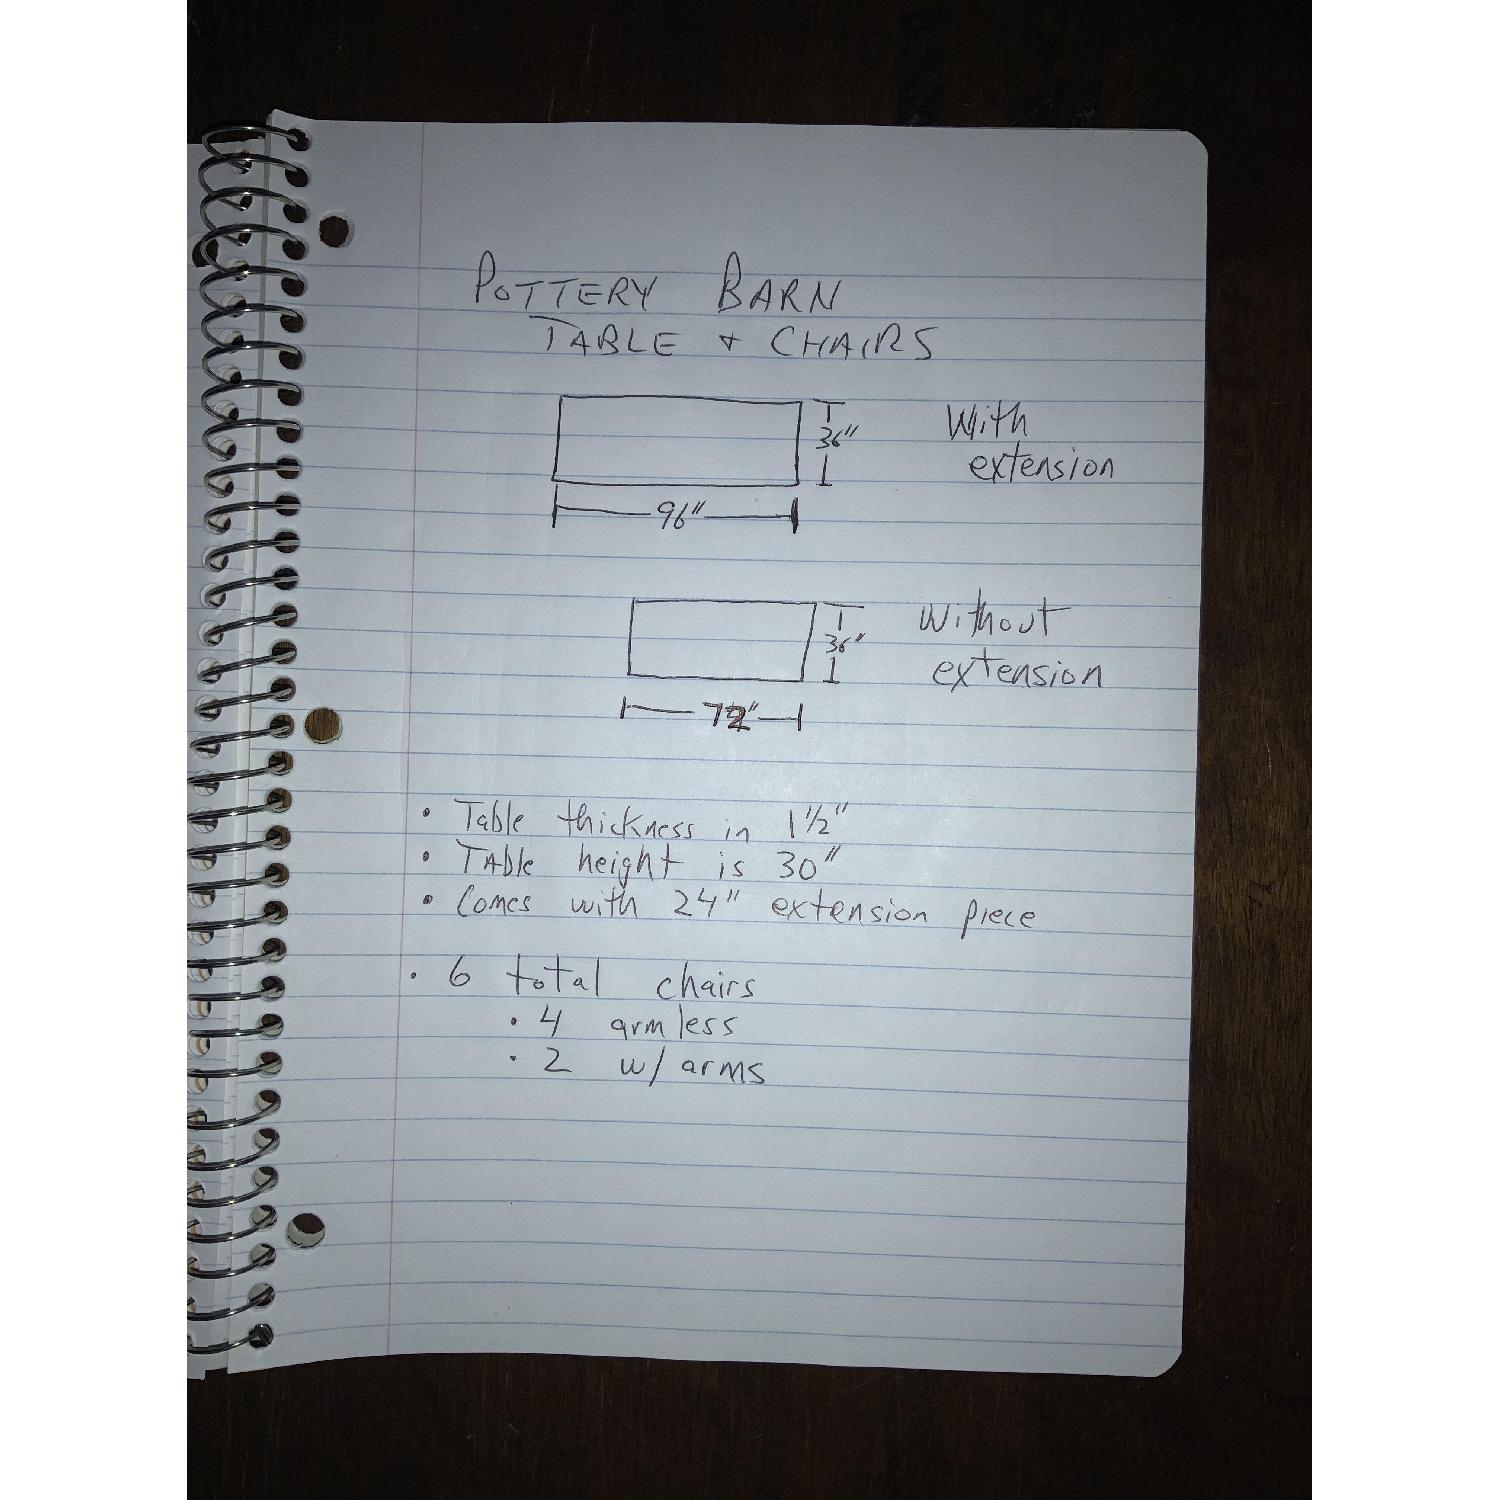 POTTERY BARN
TABLE + CHAIRS
36"
With
extension
96"
36"
Without
extension
72"
• Table thickness in 1 1/2"
• TAble height is 30"
• Comes with 24" extension piece
• 6 total chairs
• 4 armless
• 2 w/ arms